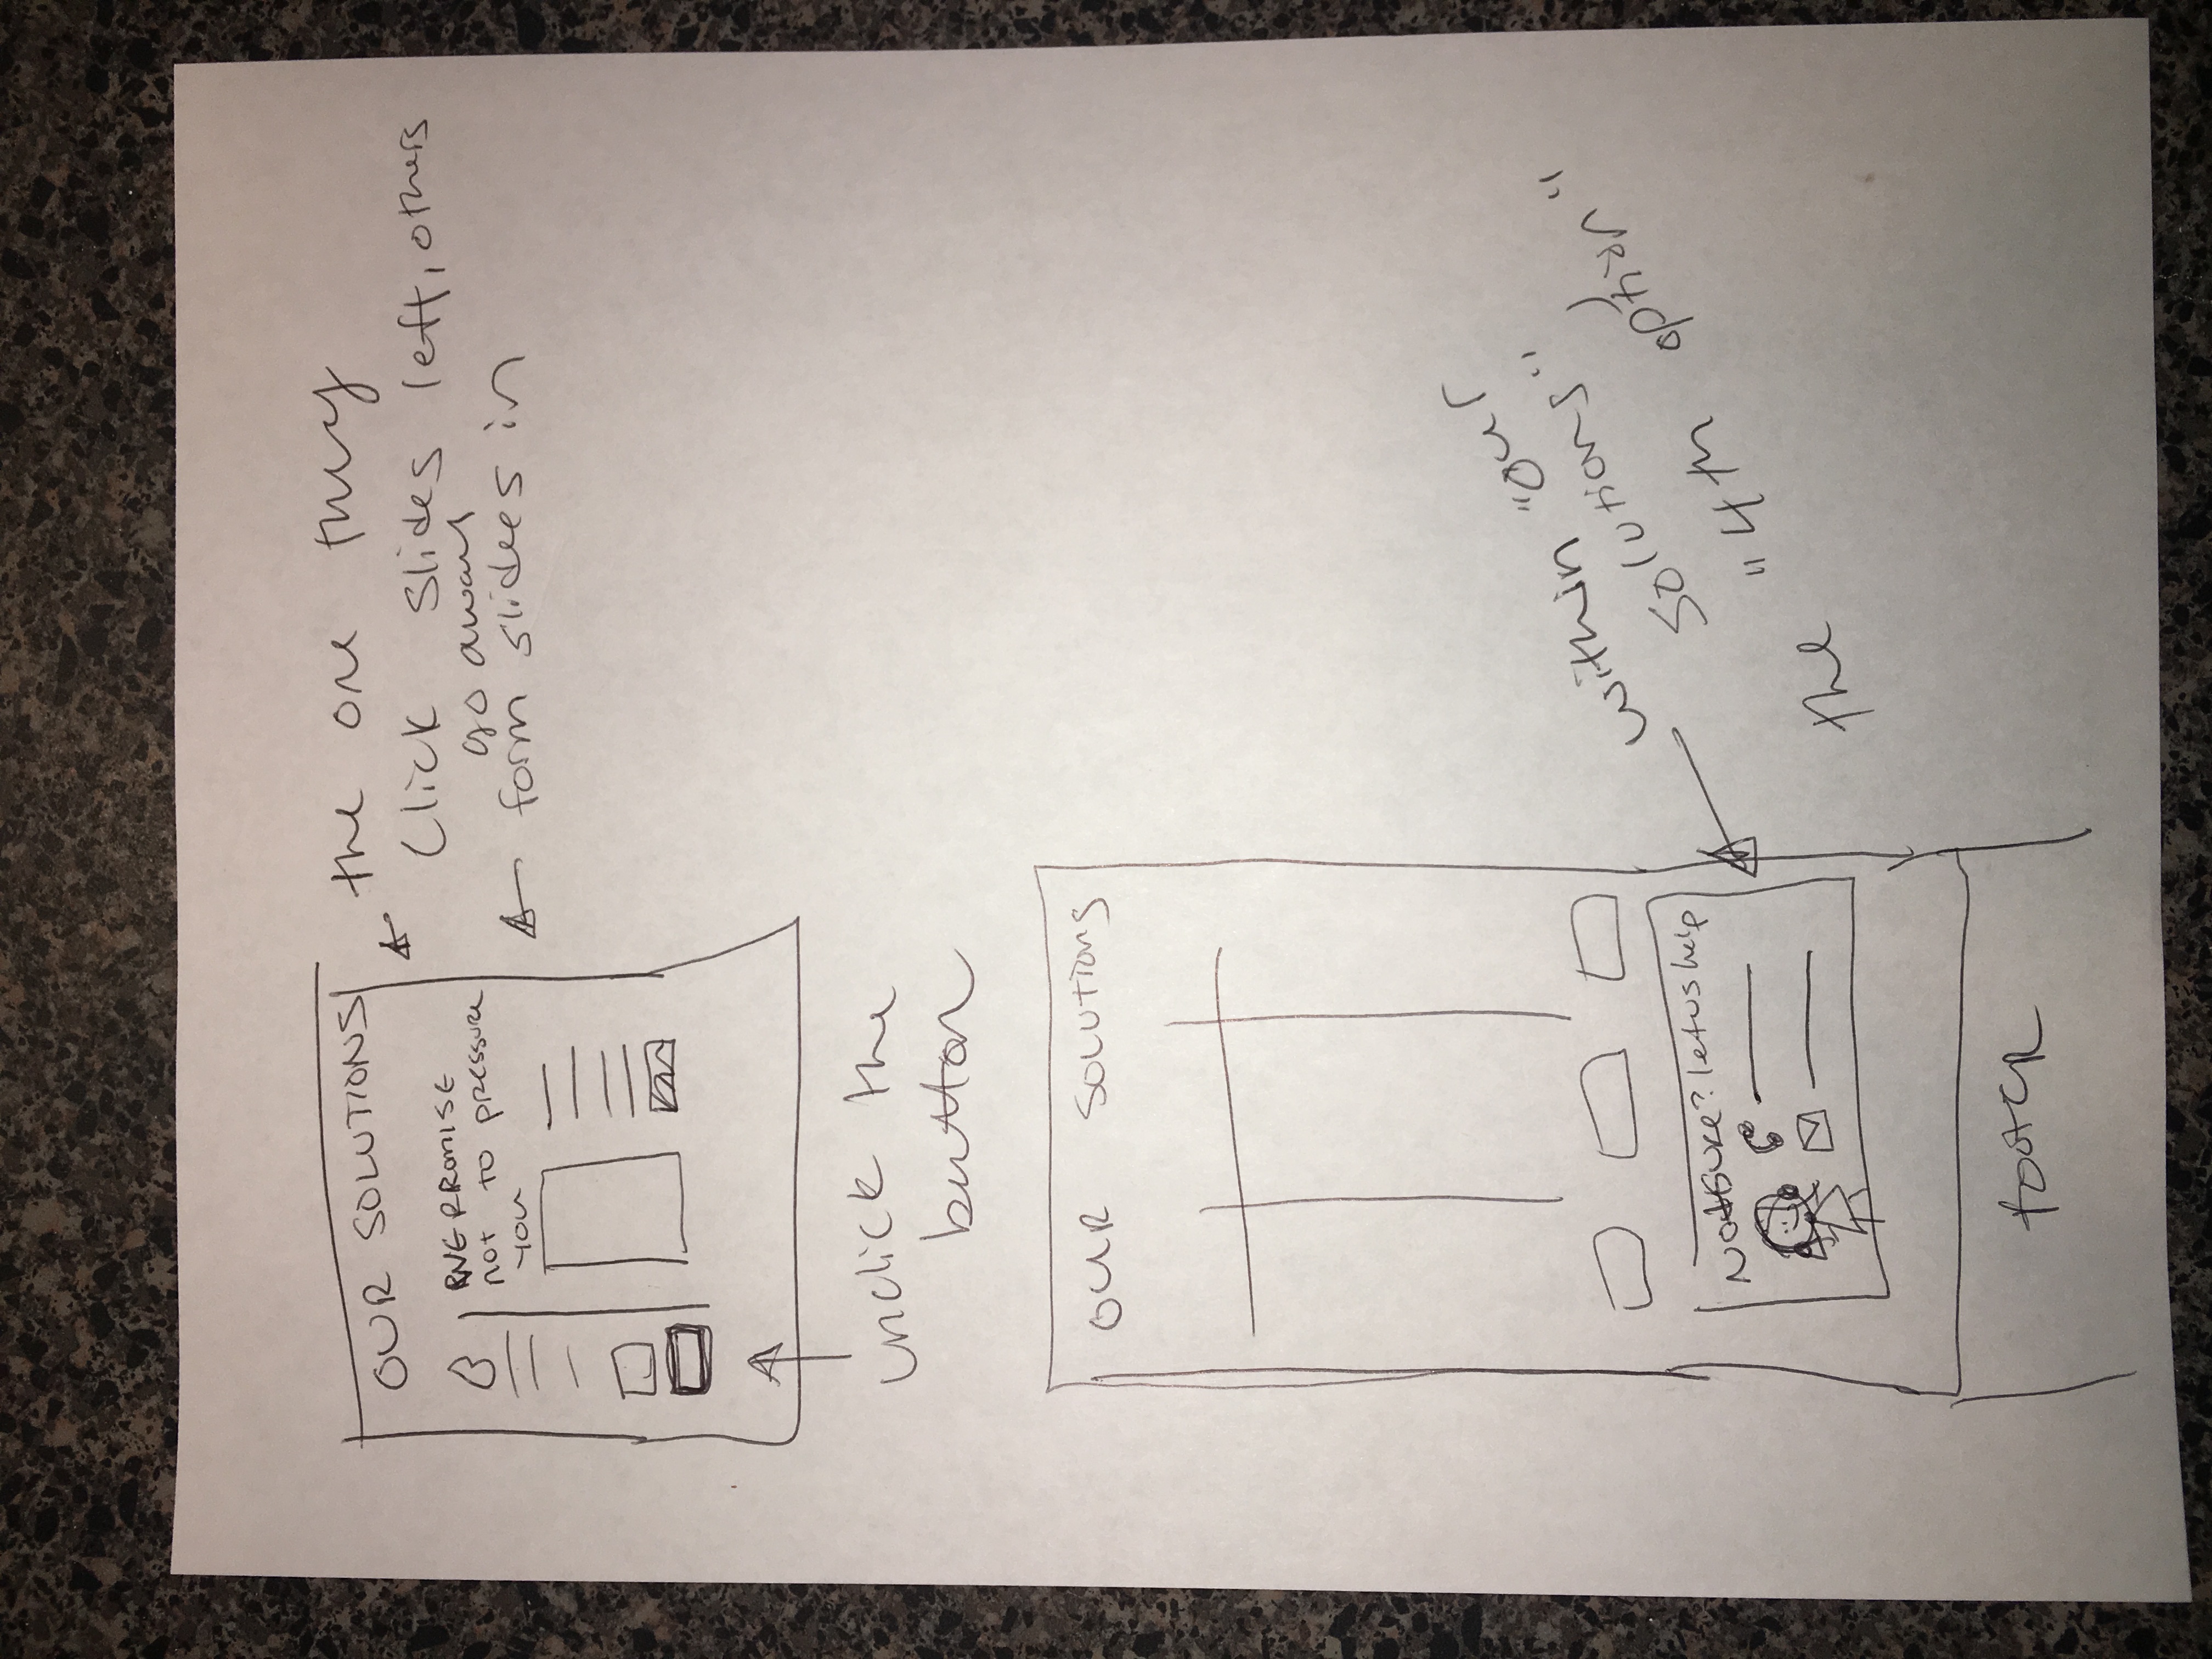 OUR SOLUTIONS
WE PROMISE
not to pressure
you
the one they
Click slides left, others
go away
form slides in
unclick the
button
OUR SOLUTIONS
Not sure? let us help
within "our
solutions"
the "4th option"
footer